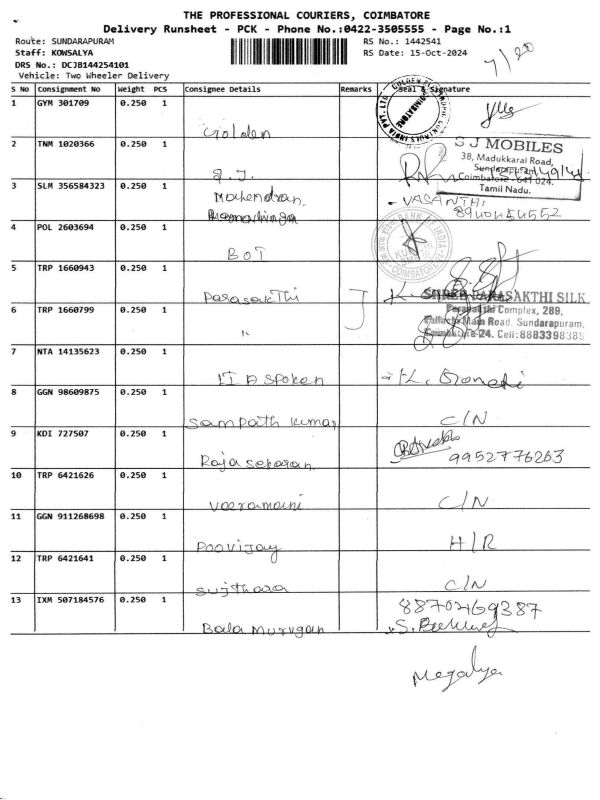 THE PROFESSIONAL COURIERS, COIMBATORE
Delivery Runsheet - PCK - Phone No.:0422-3505555 - Page No.:1
Route: SUNDARAPURAM RS No.: 1442541
Staff: KOWSALYA RS Date: 15-Oct-2024
DRS No.: DCJB144254101
Vehicle: Two Wheeler Delivery
7/20
S No Consignment No Weight PCS Consignee Details Remarks Seal & Signature
1 GYM 301709 0.250 1 Golden
2 TNM 1020366 0.250 1 S.J.
S J MOBILES
38, Madukkarai Road,
Sundarapuram,
Coimbatore - 641 024.
Tamil Nadu.
3 SLM 356584323 0.250 1 Mahendran - VASANTHI
4 POL 2603694 0.250 1 BOI
BANK OF INDIA
COIMBATORE
5 TRP 1660943 0.250 1 Parasakthi
SHREE PARASAKTHI SILK
Parasakthi Complex, 289,
Pollachi Main Road, Sundarapuram,
Coimbatore-24. Cell:8883398385
6 TRP 1660799 0.250 1 "
7 NTA 14135623 0.250 1 IIA Spoken
8 GGN 98609875 0.250 1 Sampath kumar C/N
9 KDI 727507 0.250 1 Rajasekaran 9952776263
10 TRP 6421626 0.250 1 Veeramani C/N
11 GGN 911268698 0.250 1 Poovijay H/R
12 TRP 6421641 0.250 1 Sujthara C/N
13 IXM 507184576 0.250 1 Bala Murugan 8870269387
Megalya